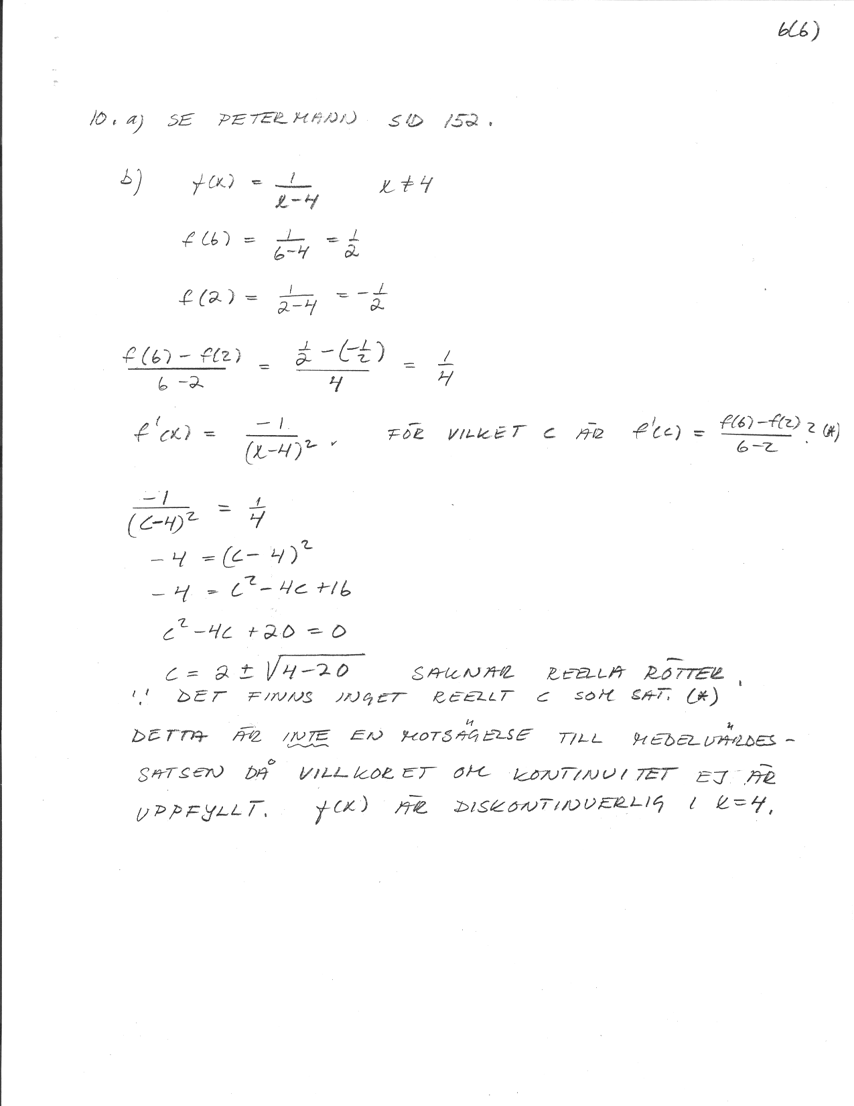 6(6)
10. a) SE PETERMANN SID 152.
b) f(x) = 1/(x-4)   x ≠ 4
f(6) = 1/(6-4) = 1/2
f(2) = 1/(2-4) = -1/2
(f(6) - f(2))/(6-2) = (1/2 - (-1/2))/4 = 1/4
f'(x) = -1/(x-4)². FÖR VILKET C ÄR f'(c) = (f(6)-f(2))/(6-2) ? (*)
-1/(c-4)² = 1/4
-4 = (c-4)²
-4 = c² - 4c + 16
c² - 4c + 20 = 0
c = 2 ± √(4-20)   SAKNAR REELLA RÖTTER.
∵ DET FINNS INGET REELLT C SOM SAT. (*)
DETTA ÄR INTE EN MOTSÄGELSE TILL MEDELVÄRDES-
SATSEN DÅ VILLKORET OM KONTINUITET EJ ÄR
UPPFYLLT. f(x) ÄR DISKONTINUERLIG I x=4.